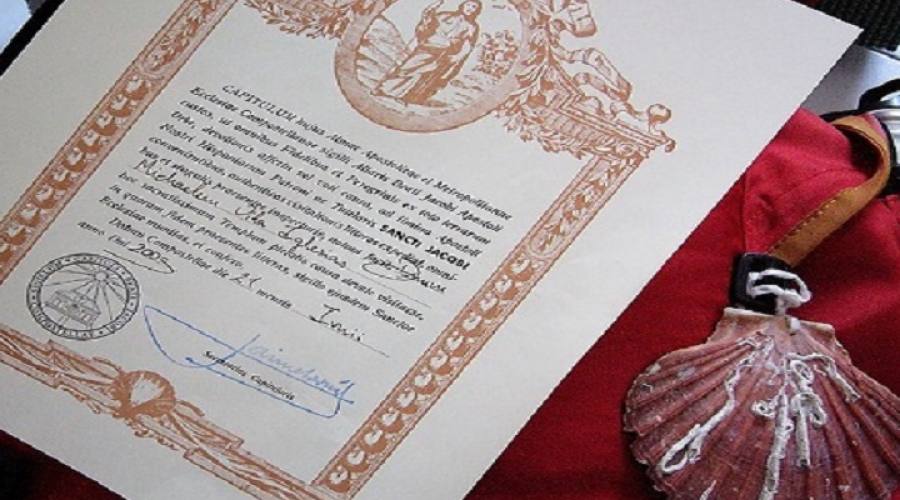 CAPITULUM hujus Almae Apostolicae et Metropolitanae
Ecclesiae Compostellanae sigilli Altaris Beati Jacobi Apostoli
custos, ut omnibus Fidelibus et Peregrinis ex toto terrarum
Orbe, devotionis affectu vel voti causa, ad limina Apostoli
Nostri Hispaniarum Patroni ac Tutelaris SANCTI JACOBI
convenientibus, authenticas visitationis litteras expediat, omni-
bus et singulis praesentes inspecturis, notum facit:
Michaelem
hoc sacratissimum Templum pietatis causa devote visitasse.
In quorum fidem praesentes litteras, sigillo ejusdem Sanctae
Ecclesiae munitas, ei confero.
Datum Compostellae die 21 mensis Iunii
anno Dni 2005
Secretarius Capitularis